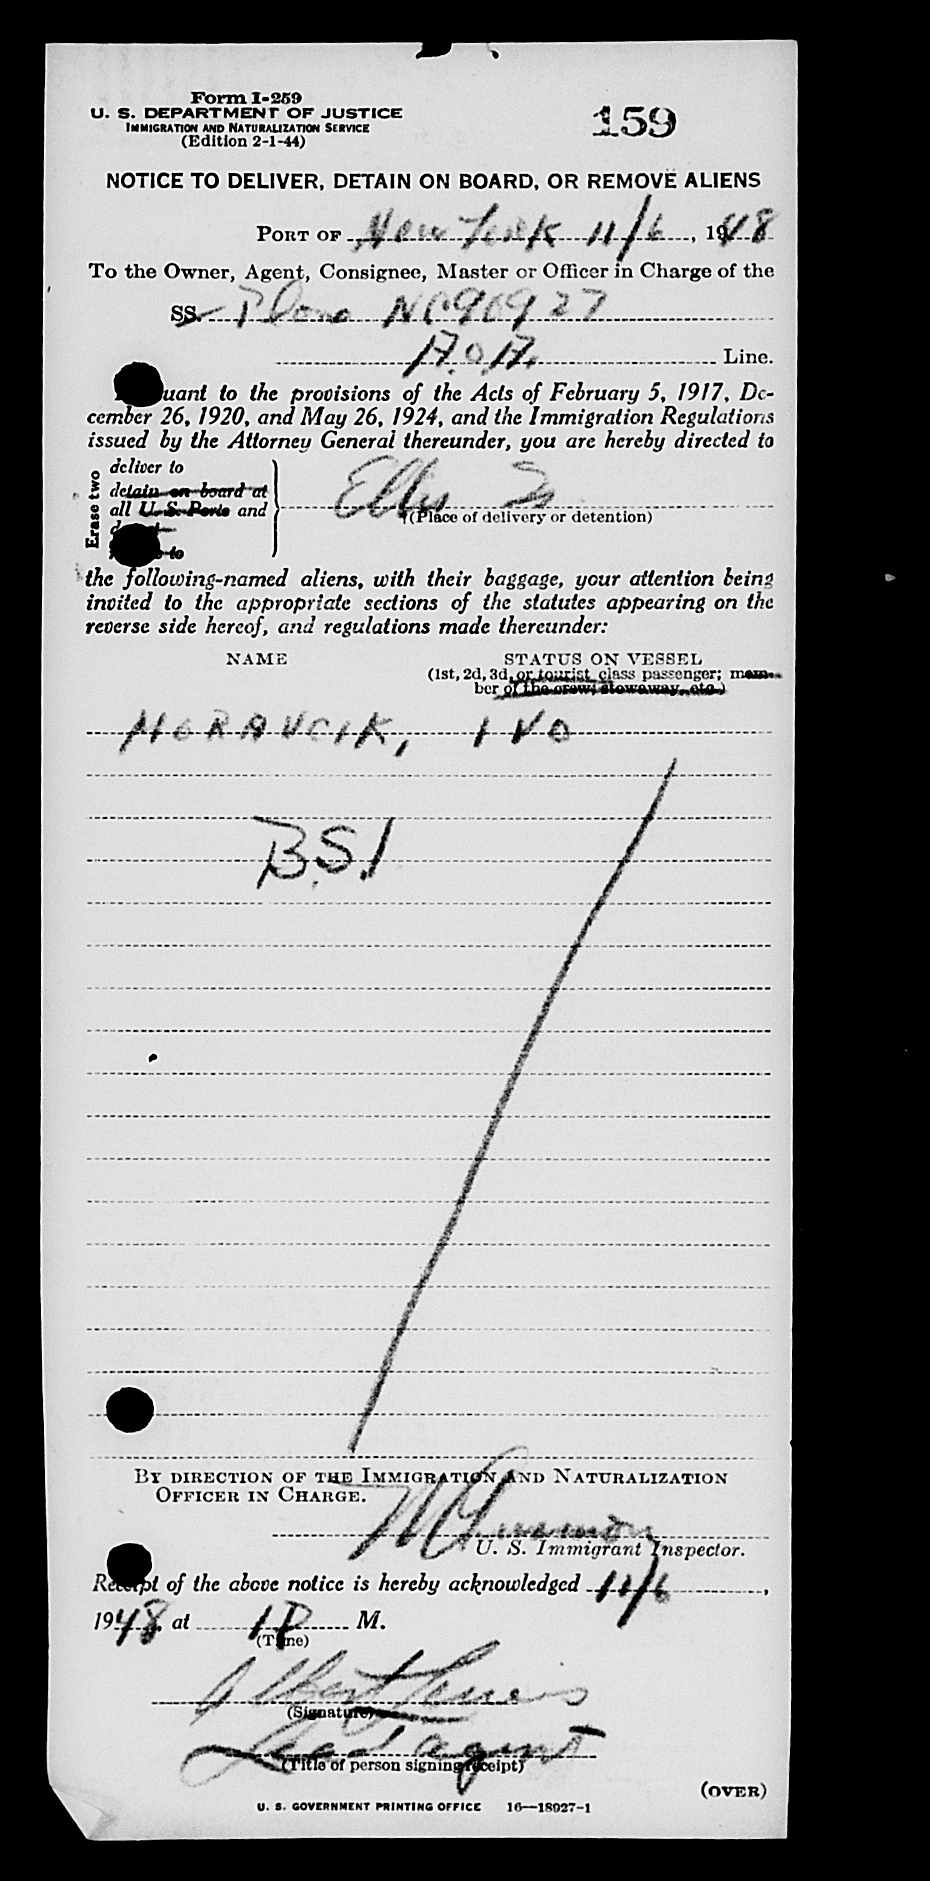 Form I-259
U. S. DEPARTMENT OF JUSTICE
IMMIGRATION AND NATURALIZATION SERVICE
(Edition 2-1-44)
159
NOTICE TO DELIVER, DETAIN ON BOARD, OR REMOVE ALIENS
PORT OF New York 11/6, 1948
To the Owner, Agent, Consignee, Master or Officer in Charge of the
SS. Plane NC90927
A.O.A. Line.
uant to the provisions of the Acts of February 5, 1917, De-
cember 26, 1920, and May 26, 1924, and the Immigration Regulations
issued by the Attorney General thereunder, you are hereby directed to
Erase two
deliver to
detain on board at
all U. S. Ports and
to
Ellis Is
(Place of delivery or detention)
the following-named aliens, with their baggage, your attention being
invited to the appropriate sections of the statutes appearing on the
reverse side hereof, and regulations made thereunder:
NAME
STATUS ON VESSEL
(1st, 2d, 3d, or tourist class passenger; mem-
ber of the crew, stowaway, etc.)
MORAVCIK, IVO
B.S.I
BY DIRECTION OF THE IMMIGRATION AND NATURALIZATION
OFFICER IN CHARGE.
U. S. Immigrant Inspector.
Receipt of the above notice is hereby acknowledged 11/6,
1948, at 1 P M.
(Time)
Albert
(Signature)
agent
(Title of person signing receipt)
(OVER)
U. S. GOVERNMENT PRINTING OFFICE 16—18027-1